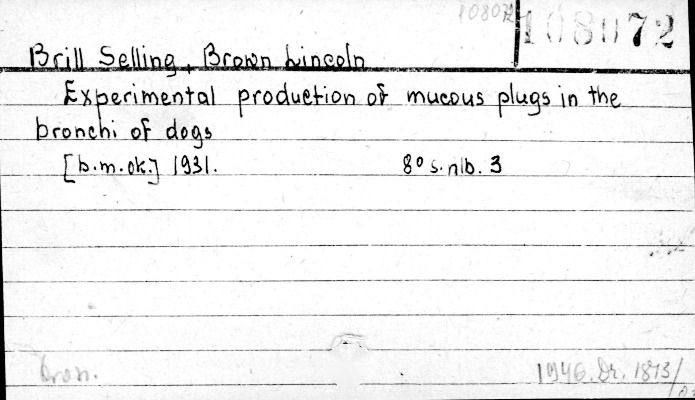 108072
108072
Brill Selling, Brown Lincoln
Experimental production of mucous plugs in the
bronchi of dogs
[b.m.ok.] 1931. 8° s.nlb. 3
bron.
1946. Dr. 1873/